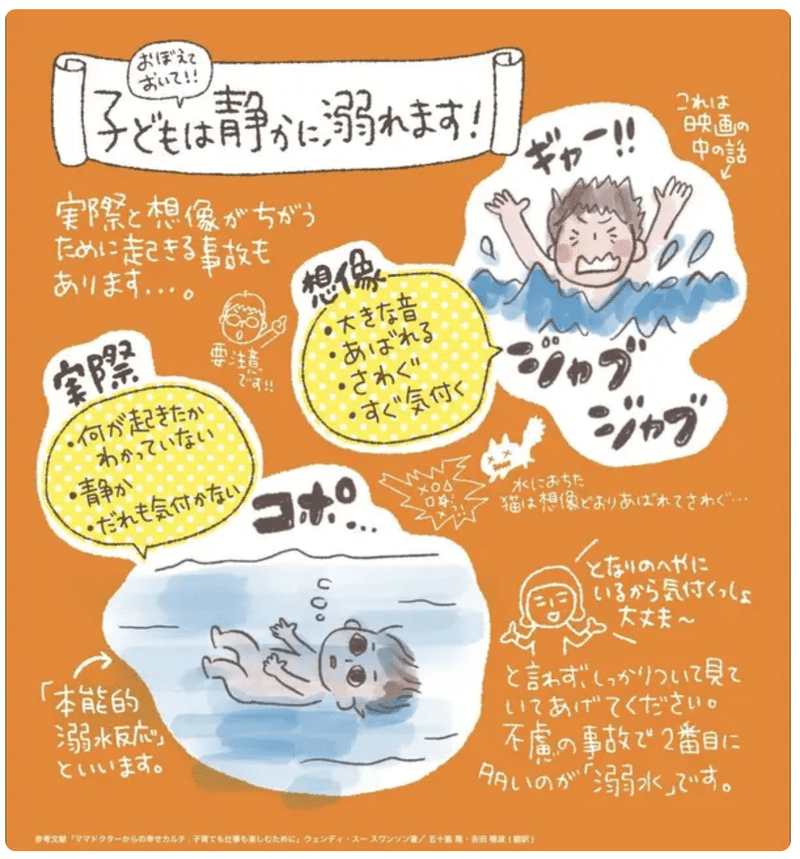 おぼえて
おいて!!
子どもは静かに溺れます!
これは
映画の
中の話
ギャー!!
実際と想像がちがう
ために起きる事故も
あります...。
要注意
です!!
想像
・大きな音
・あばれる
・さわぐ
・すぐ気付く
ジャブ
ジャブ
実際
・何が起きたか
わかっていない
・静か
・だれも気付かない
コポ...
水におちた
猫は想像どおりあばれてさわぐ…
となりのへやに
いるから気付くっしょ
大丈夫〜
と言わず、しっかりついて見て
いてあげてください。
不慮の事故で2番目に
多いのが「溺水」です。
「本能的
溺水反応」
といいます。
参考文献「ママドクターからの幸せカルテ:子育ても仕事も楽しむために」ウェンディ・スー スワンソン著/ 五十嵐 隆・吉田 穂波(翻訳)